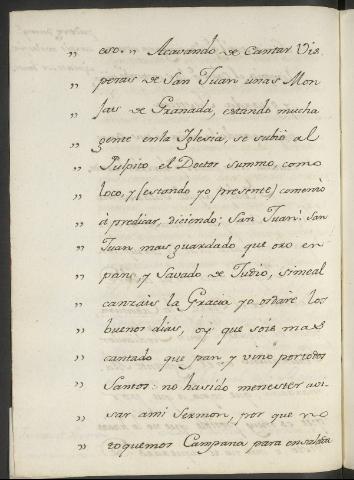 ,, eso. ,, Acavando de Cantar Vis
,, peras de San Juan unas Mon
,, jas de Granada, estando mucha
,, gente enla Iglesia, se subió al
,, Pulpito el Doctor Summo, como
,, loco, y (estando yo presente) comenzò
,, á predicar, diciendo; San Juan! San
,, Juan mas guardado que oro en
,, paño, y Savado de Judio, simeal
,, canzais la Gracia yo os daré los
,, buenos dias, oy que sois mas
,, cantado que pan y vino portodos
,, Santos: no hasido menester avi
,, sar ami Sermon, por que no
,, toquemos Campana para ensalada